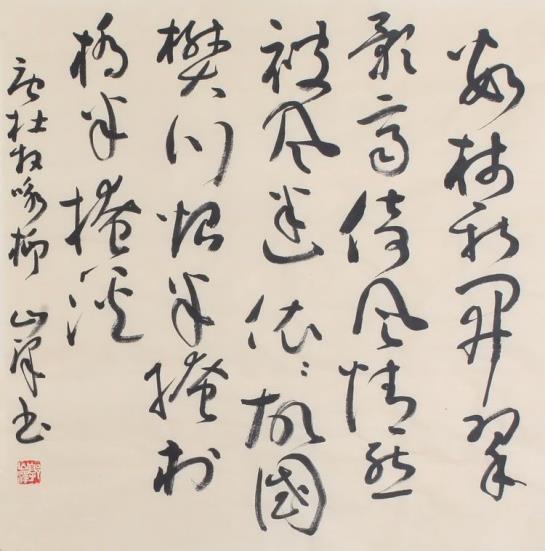 数树新開翠
影齐倚风情态
被风迷依依故國
樊川恨半掩村
桥半掩溪
唐杜牧咏柳 山 书